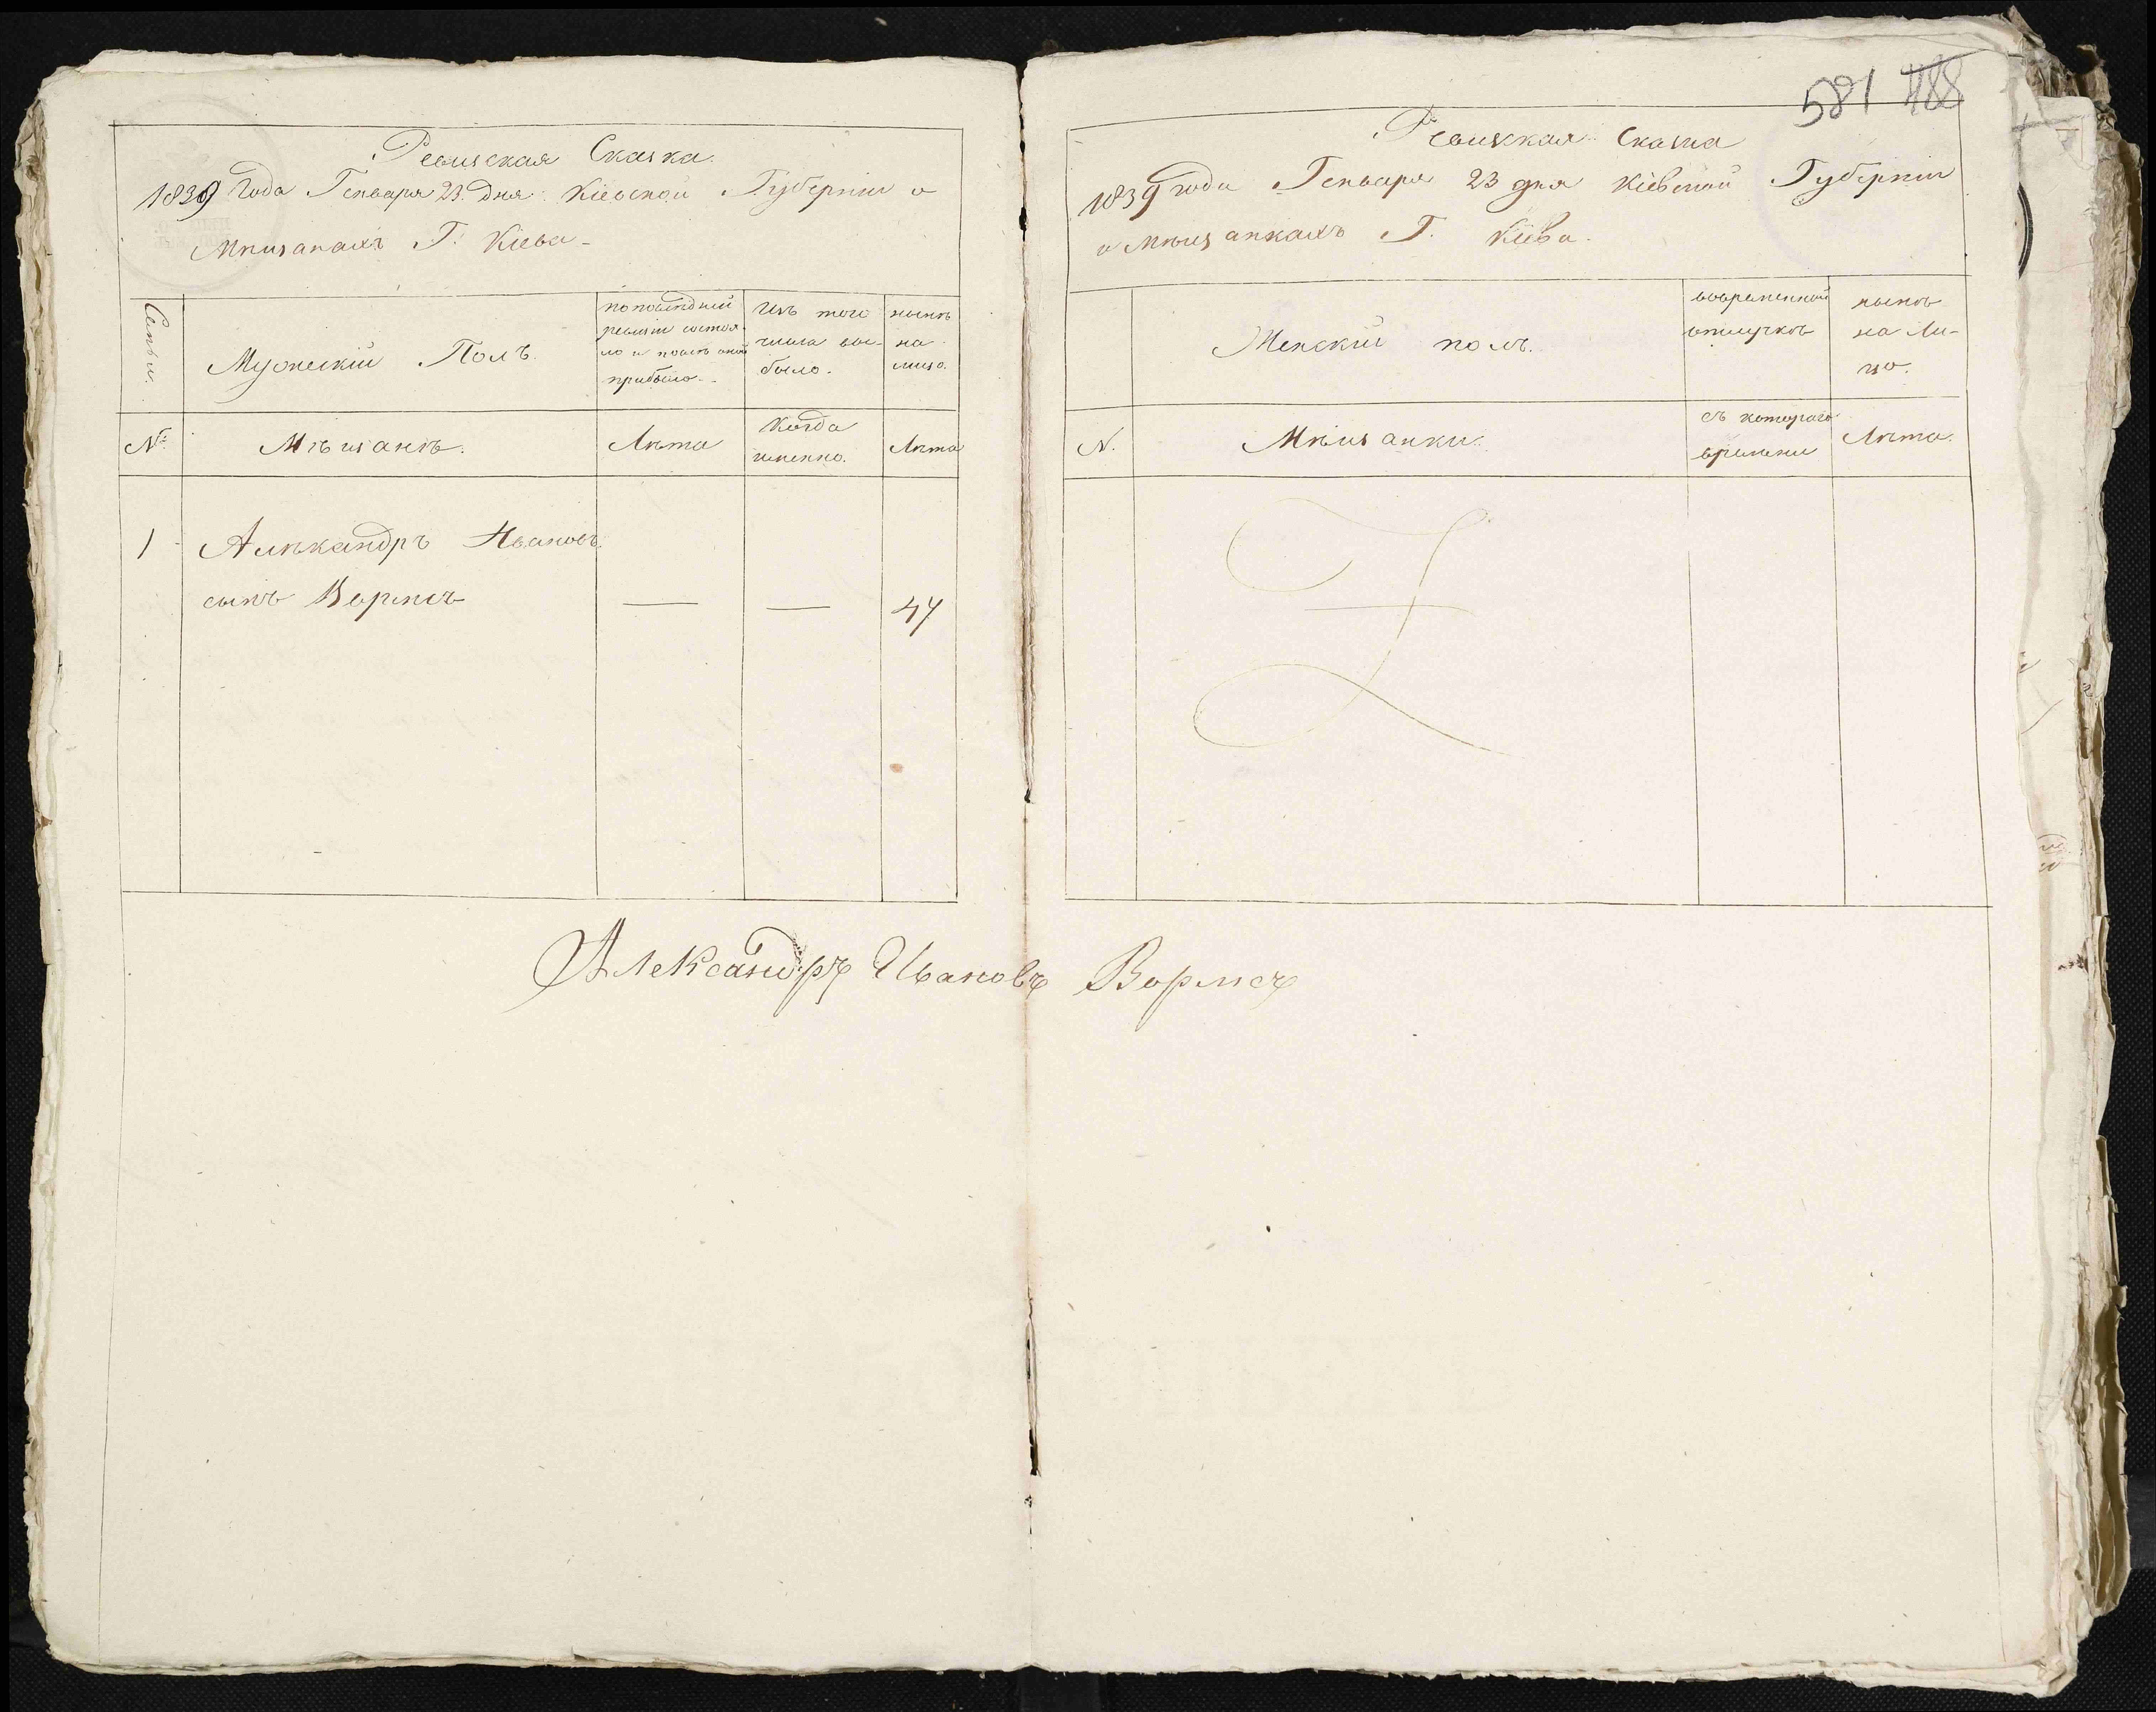 Ревизская Сказка.
1839 года Генваря 23. дня Кіевской Губерніи о
Мѣщанахъ Г. Кіева -
Семьи.
Мужескій Полъ.
по последней
ревизіи состоя-
ло и послѣ оной
прибыло.
Изъ того
числа вы-
было.
нынѣ
на
лицо.
№
Мѣщанѣ.
Лѣта
Когда
именно.
Лѣта
1
Александръ Ивановъ
сынъ Вормсъ
—
—
47
581 488
Ревизкая Сказка
1839 года Генваря 23 дня Кіевской Губерніи
о Мѣщанкахъ Г. Кіева.
Женскій полъ.
вовременной
отлучкѣ
нынѣ
на Ли-
цо.
N.
Мѣщанки.
съ котораго
времени
Лѣта.
Александръ Ивановъ Вормсъ